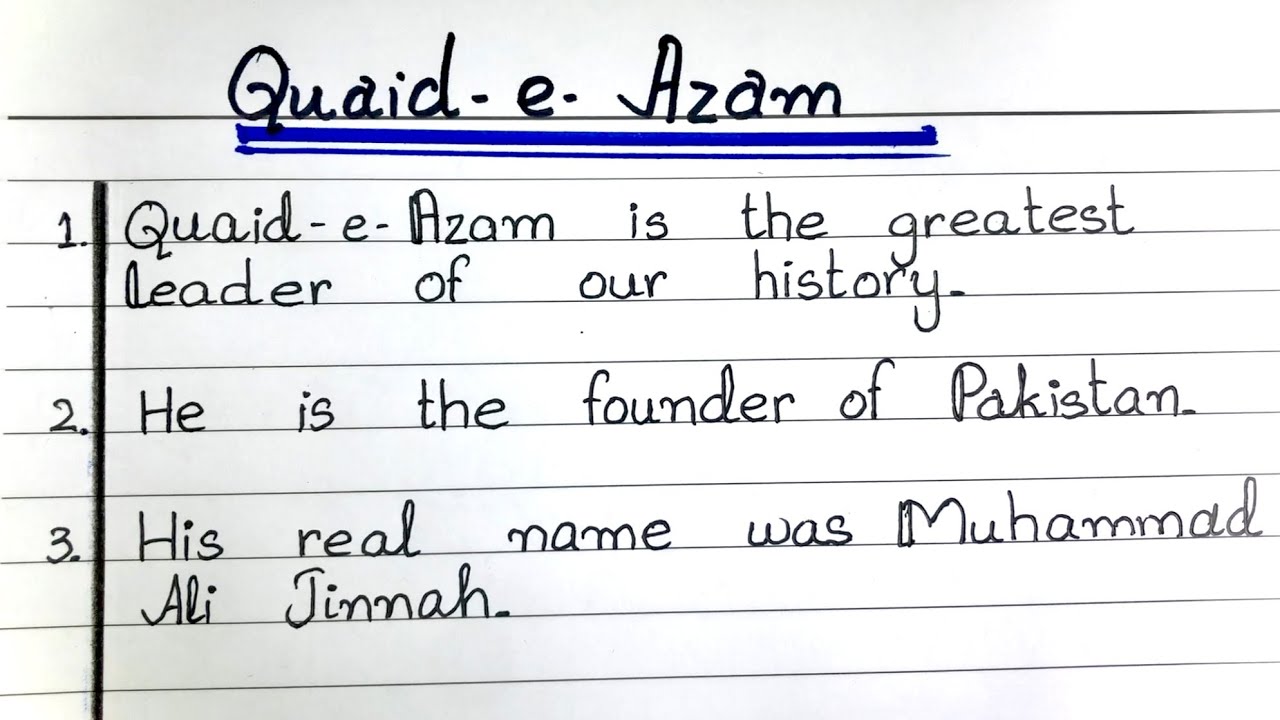 Quaid-e-Azam
1. Quaid-e-Azam is the greatest
leader of our history.
2. He is the founder of Pakistan.
3. His real name was Muhammad
Ali Jinnah.